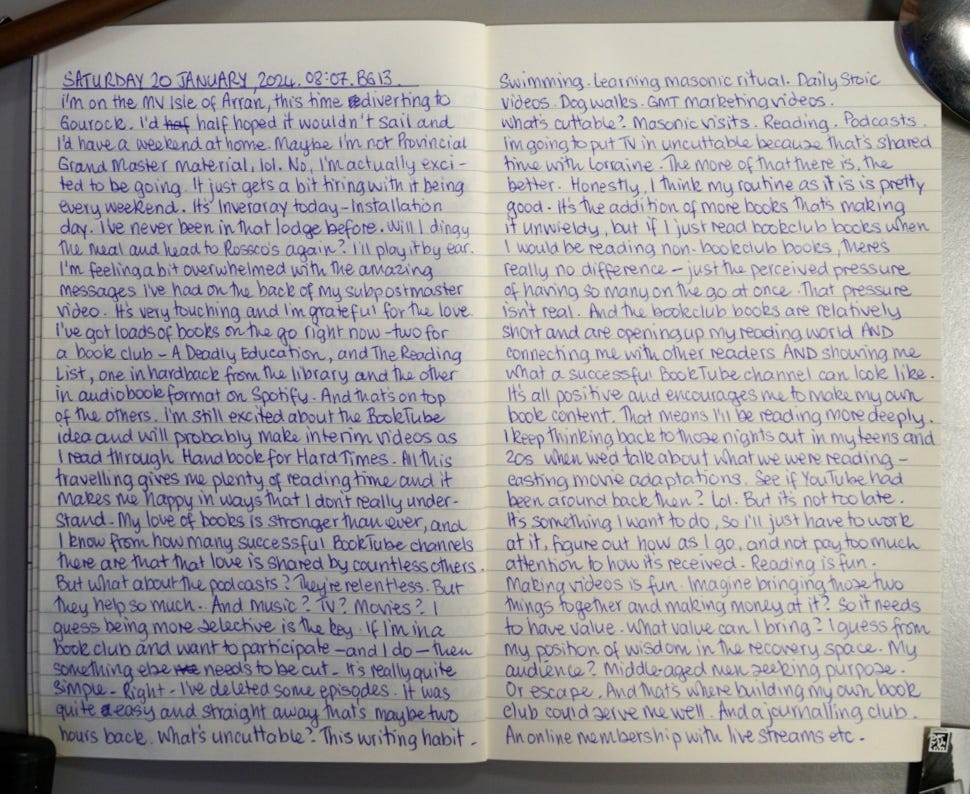 SATURDAY 20 JANUARY, 2024. 08:07. BG13
i'm on the MV Isle of Arran, this time diverting to
Gourock. I'd haf half hoped it wouldn't sail and
I'd have a weekend at home. Maybe I'm not Provincial
Grand Master material, lol. No, I'm actually exci-
ted to be going. It just gets a bit tiring with it being
every weekend. It's Inveraray today - Installation
day. I've never been in that lodge before. Will I dingy
the meal and head to Rossco's again? I'll play it by ear.
I'm feeling a bit overwhelmed with the amazing
messages I've had on the back of my subpostmaster
video. It's very touching and I'm grateful for the love.
I've got loads of books on the go right now - two for
a book club - A Deadly Education, and The Reading
List, one in hardback from the library and the other
in audiobook format on Spotify. And that's on top
of the others. I'm still excited about the BookTube
idea and will probably make interim videos as
I read through Handbook for Hard Times. All this
travelling gives me plenty of reading time and it
makes me happy in ways that I don't really under-
stand. My love of books is stronger than ever, and
I know from how many successful BookTube channels
there are that that love is shared by countless others.
But what about the podcasts? They're relentless. But
they help so much. And music? TV? Movies? I
guess being more selective is the key. If I'm in a
book club and want to participate - and I do - then
something else needs to be cut. It's really quite
simple. Right - I've deleted some episodes. It was
quite easy and straight away that's maybe two
hours back. What's uncuttable? This writing habit.
Swimming. Learning masonic ritual. Daily Stoic
videos. Dog walks. GMT marketing videos.
What's cuttable? Masonic visits. Reading. Podcasts.
I'm going to put TV in uncuttable because that's shared
time with Lorraine. The more of that there is, the
better. Honestly, I think my routine as it is is pretty
good. It's the addition of more books that's making
it unwieldy, but if I just read bookclub books when
I would be reading non-bookclub books, there's
really no difference - just the perceived pressure
of having so many on the go at once. That pressure
isn't real. And the bookclub books are relatively
short and are opening up my reading world AND
connecting me with other readers AND showing me
what a successful BookTube channel can look like.
It's all positive and encourages me to make my own
book content. That means I'll be reading more deeply.
I keep thinking back to those nights out in my teens and
20s when we'd talk about what we were reading -
casting movie adaptations. See if YouTube had
been around back then? Lol. But it's not too late.
It's something I want to do, so I'll just have to work
at it, figure out how as I go, and not pay too much
attention to how it's received. Reading is fun.
Making videos is fun. Imagine bringing those two
things together and making money at it? So it needs
to have value. What value can I bring? I guess from
my position of wisdom in the recovery space. My
audience? Middle-aged men seeking purpose.
Or escape. And that's where building my own book
club could serve me well. And a journalling club.
An online membership with live streams etc.